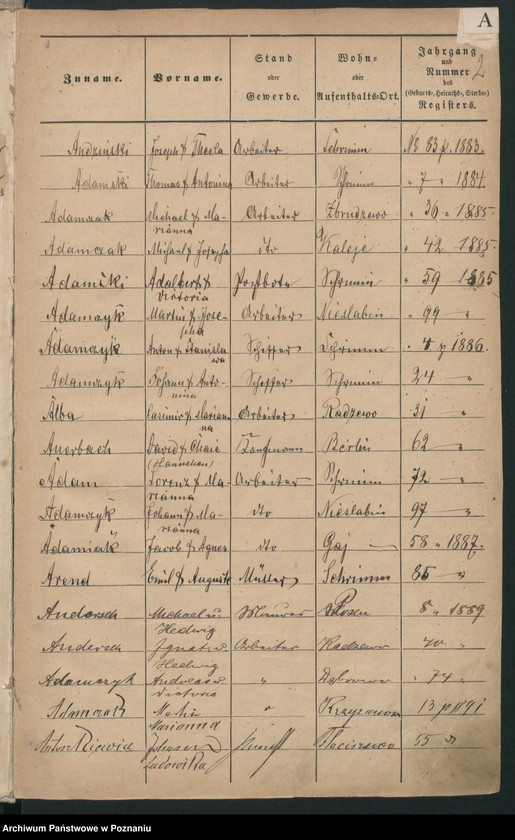 A
2
Zuname. Vorname. Stand oder Gewerbe. Wohn- oder Aufenthalts-Ort. Jahrgang und Nummer des (Geburts-, Heiraths-, Sterbe-) Registers.
Andzinski Joseph & Thecla Arbeiter Schrimm No 83 p. 1883.
Adamski Thomas & Antonina Arbeiter Schrimm " 7 " 1884.
Adamczak Michael & Ma- Arbeiter Zbrudzewo " 36 " 1885.
rianna
Adamczak Michael & Josepha dto Kaleje " 42 1885.
Adamski Adalbert & Postbote Schrimm " 59 1885
Victoria
Adamczyk Martin & Jose- Arbeiter Nieslabin " 99 "
pha
Adamczyk Anton & Stanisla- Schiffer Schrimm " 4 p 1886.
wa
Adamczyk Johann & Anto- Schiffer Schrimm 24 "
nina
Alba Casimir & Marian- Arbeiter Radzewo 31 "
na
Auerbach David & Chaie Kaufmann Berlin 62 "
(Hannchen)
Adam Lorenz & Ma- Arbeiter Schrimm 72 "
rianna
Adamczyk Johann & Ma- dto Nieslabin 97 "
rianna
Adamiak Jacob & Agnes dto Gaj 58 " 1887.
Arend Emil & Auguste Müller Schrimm 85 "
Andersch Michael u. Maurer Posen 8 " 1889
Hedwig
Andersch Ignatz u. Arbeiter Radzewo 40 "
Hedwig
Adamczyk Andreas " Dąbrowa " 74 "
Victoria
Adamczak " Krzyżanowo 13 p 1891
Marianna
Johann 55 "
Ludowika
Archiwum Państwowe w Poznaniu